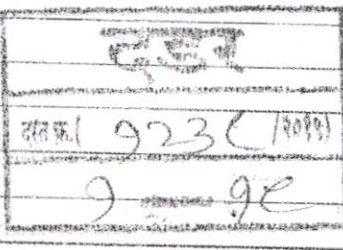 दस्त क्र.( १२३८ /२०११)
१ ---- १९